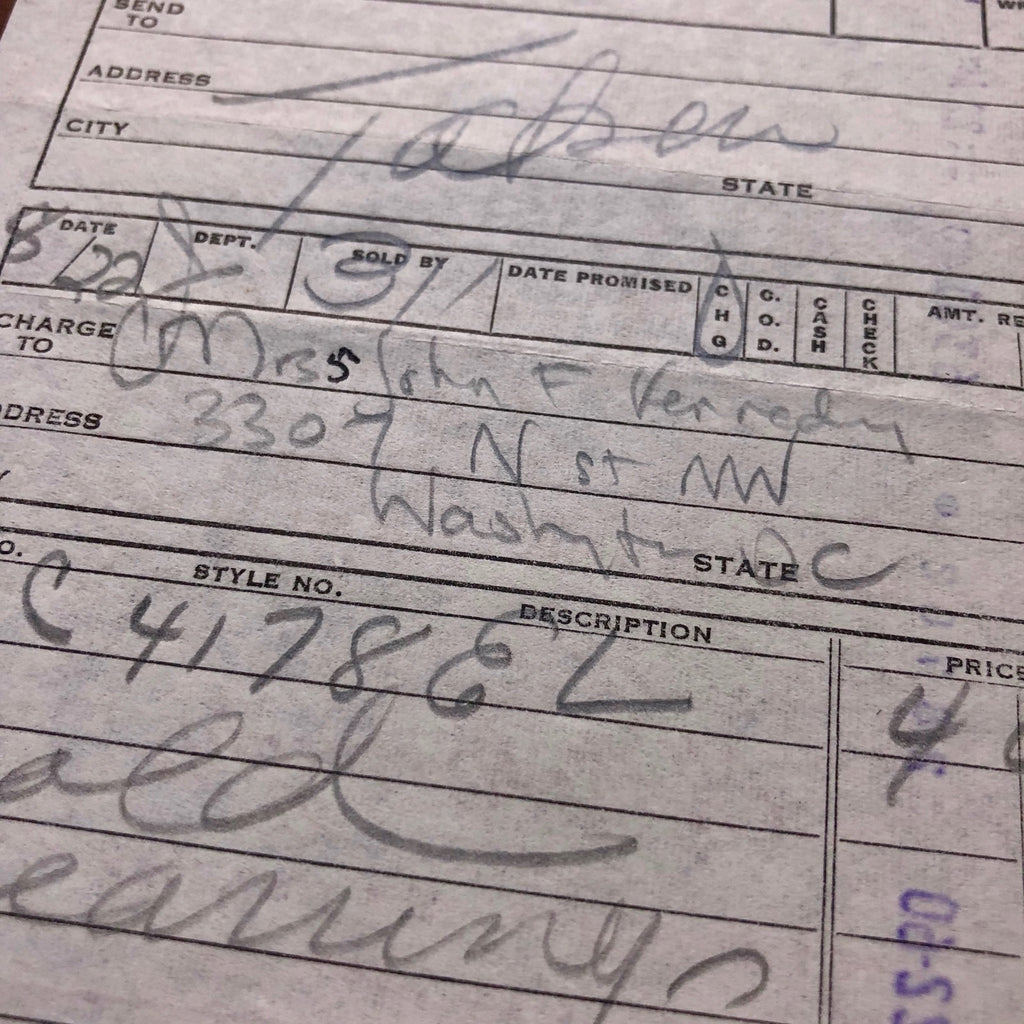 SEND TO
ADDRESS
Taken
CITY
STATE
DATE DEPT. SOLD BY DATE PROMISED CHG C.O.D. CASH CHECK AMT. RE
8/22 31
CHARGE TO Mrs John F Kennedy
DRESS 3307 N St NW
Washington STATE DC
O. STYLE NO. DESCRIPTION PRICE
C 4178 EL 4
earrings
SS-PO